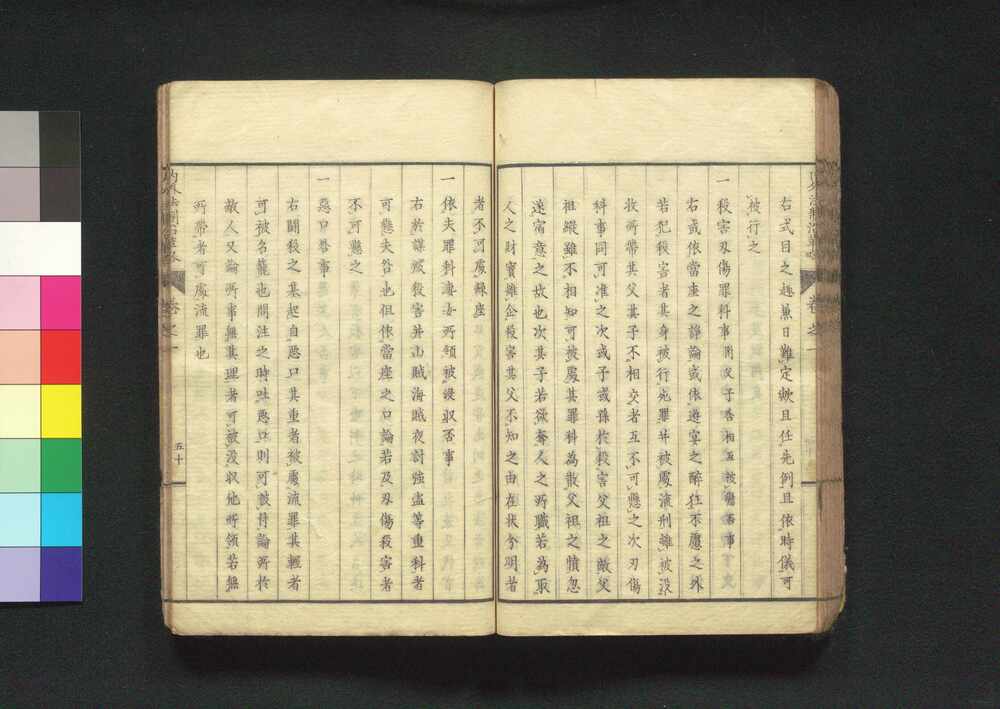 右式目之趣兼日難定歟且任先例且依時儀可
被行之
一 殺害刃傷罪科事付父子咎相互被懸否事
右或依當座之諍論或依遊宴之醉狂不慮之外
若犯殺害者其身被行死罪并被處流刑雖被沒
收所帶其父其子不相交者互不可懸之次刃傷
科事同可准之次或子或孫於殺害父祖之敵父
祖縱雖不相知可被處其罪科為散父祖之憤忽
遂宿意之故也次其子若欲奪人之所職若為取
人之財寶雖企殺害其父不知之由在狀分明者
者不可處緣座
一 依夫罪科妻女所領被沒収否事
右於謀叛殺害并山賊海賊夜討強盗等重科者
可懸夫咎也但依當座之口論若及刃傷殺害者
不可懸之
一 惡口咎事
右鬪殺之基起自惡口其重者被處流罪其輕者
可被召籠也問注之時吐惡口則可被付論所於
敵人又論所事無其理者可被沒収他所領若無
所帶者可處流罪也
卷之一
五十